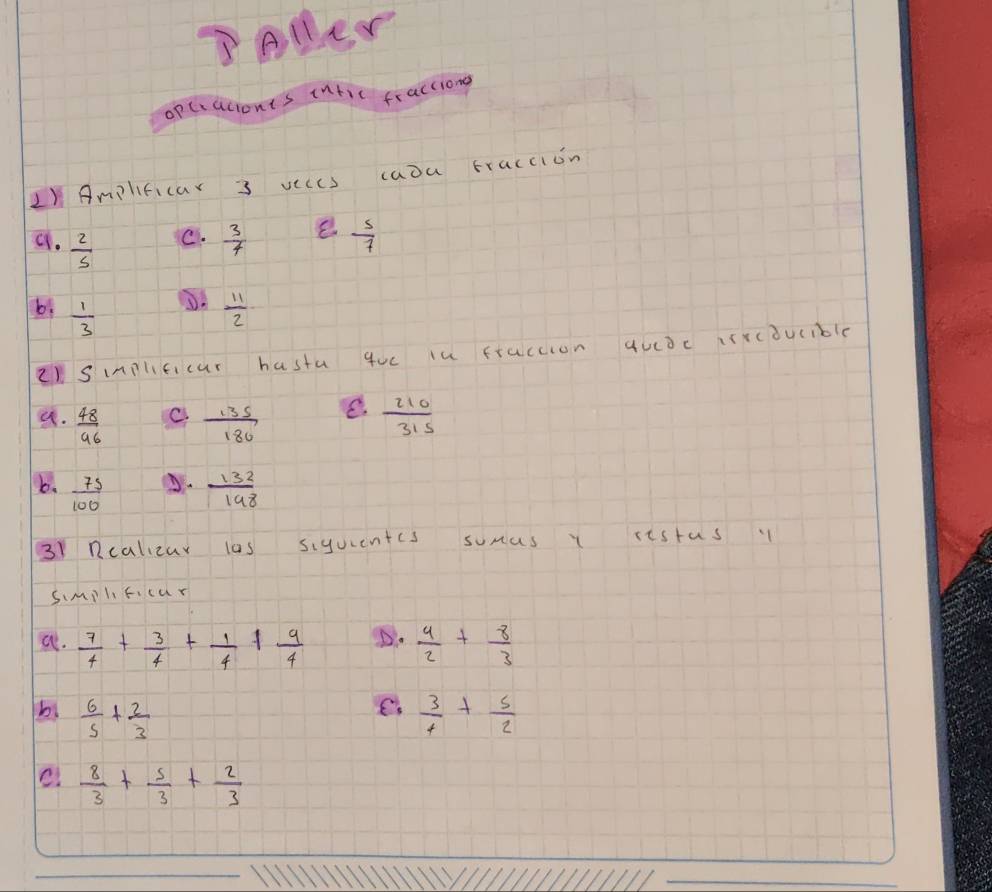 Taller
operaciones entre fracciones
1) Amplificar 3 veces cada fracción
a. 2/5 c. 3/4 E. 5/7
b. 1/3 D. 11/2
2) Simplificar hasta que la fraccion quede irreducible
a. 48/96 C. 135/180 E. 210/315
b. 75/100 D. 132/198
3) Realizar las siguientes sumas y restas y
simplificar
a. 7/4 + 3/4 + 1/4 + 9/4 D. 9/2 + 8/3
b. 6/5 + 2/3 E. 3/4 + 5/2
C. 8/3 + 5/3 + 2/3